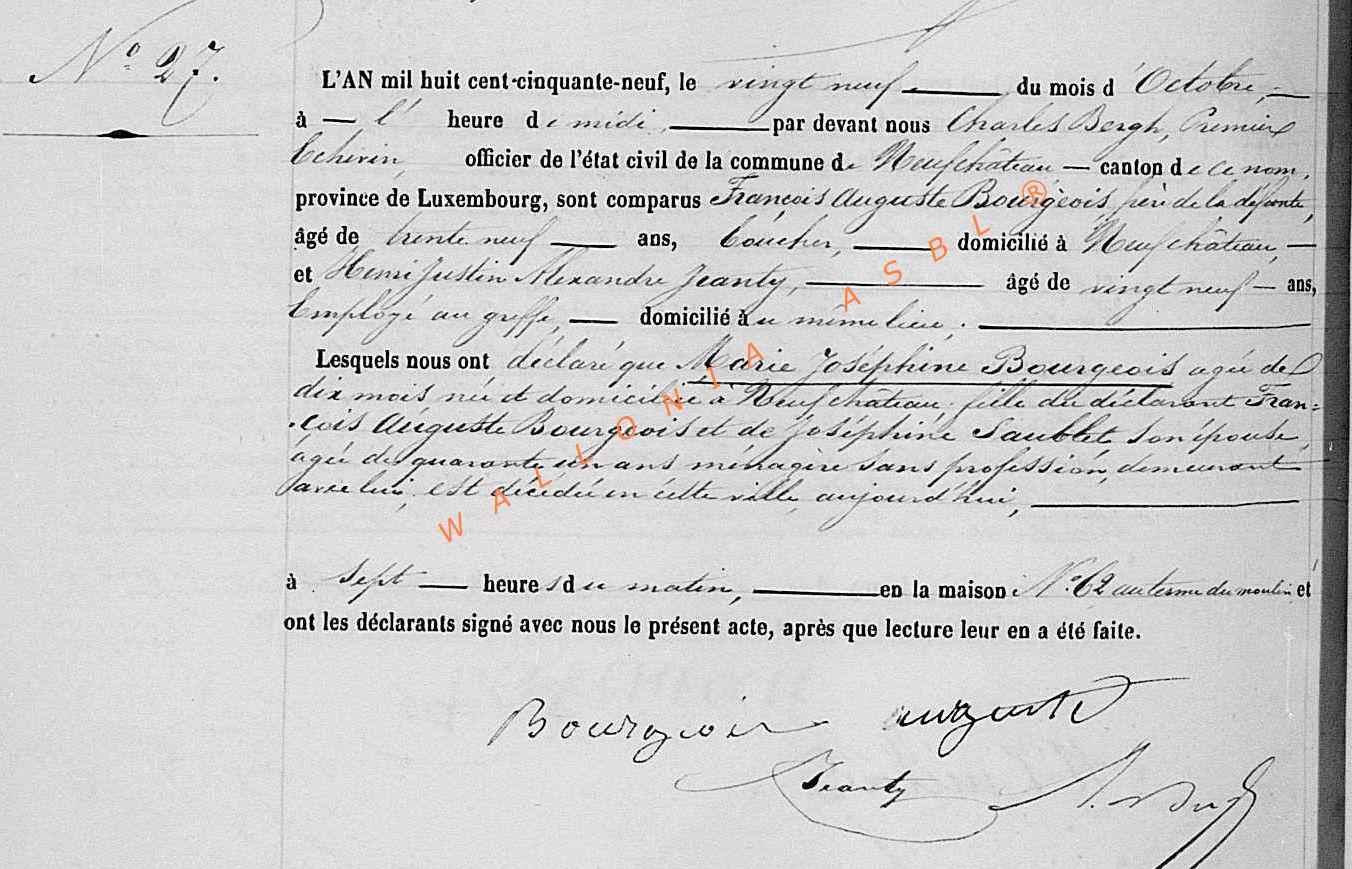 N° 27.
L'AN mil huit cent-cinquante-neuf, le vingt neuf du mois d'Octobre,
à l' heure de midi, par devant nous Charles Bergh, Premier
Echevin, officier de l'état civil de la commune de Neufchâteau canton de ce nom,
province de Luxembourg, sont comparus François Auguste Bourgeois, père de la défunte,
âgé de trente neuf ans, boucher, domicilié à Neufchâteau,
et Henri Justin Alexandre Jeanty, âgé de vingt neuf ans,
Employé au greffe, domicilié au même lieu.
Lesquels nous ont déclaré que Marie Joséphine Bourgeois agée de
dix mois née et domiciliée à Neufchâteau, fille du déclarant Fran=
çois Auguste Bourgeois et de Joséphine Saublet son épouse,
agée de quarante un ans ménagère sans profession, demeurant
avec lui, est décédée en cette ville, aujourd'hui,
à sept heures du matin, en la maison N° 62 au terme du moulin et
ont les déclarants signé avec nous le présent acte, après que lecture leur en a été faite.
Bourgeois auguste
Jeanty
WALLONIA ASBL ®